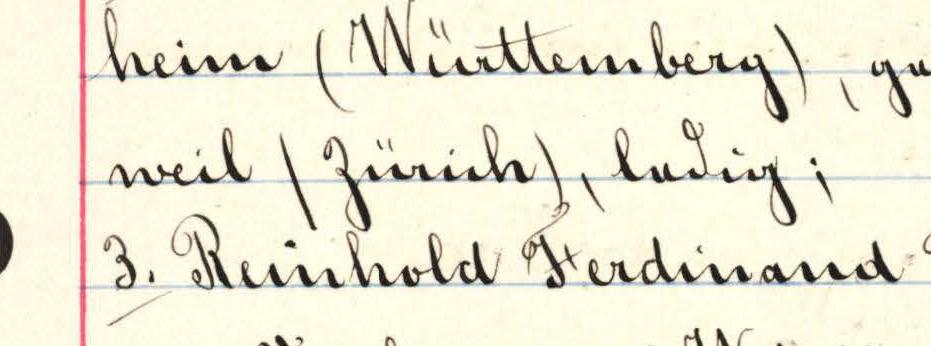 heim (Württemberg), ge
weil (Zürich), ledig;
3. Reinhold Ferdinand